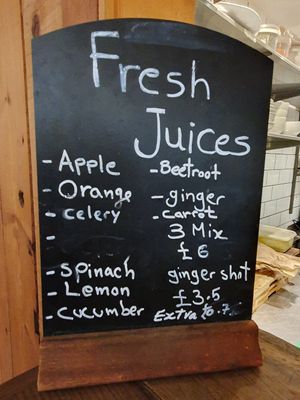 Fresh
Juices
- Apple
- Orange
- celery
-
- Spinach
- Lemon
- cucumber
- Beetroot
- ginger
- Carrot
3 Mix
£6
ginger shot
£3.5
Extra